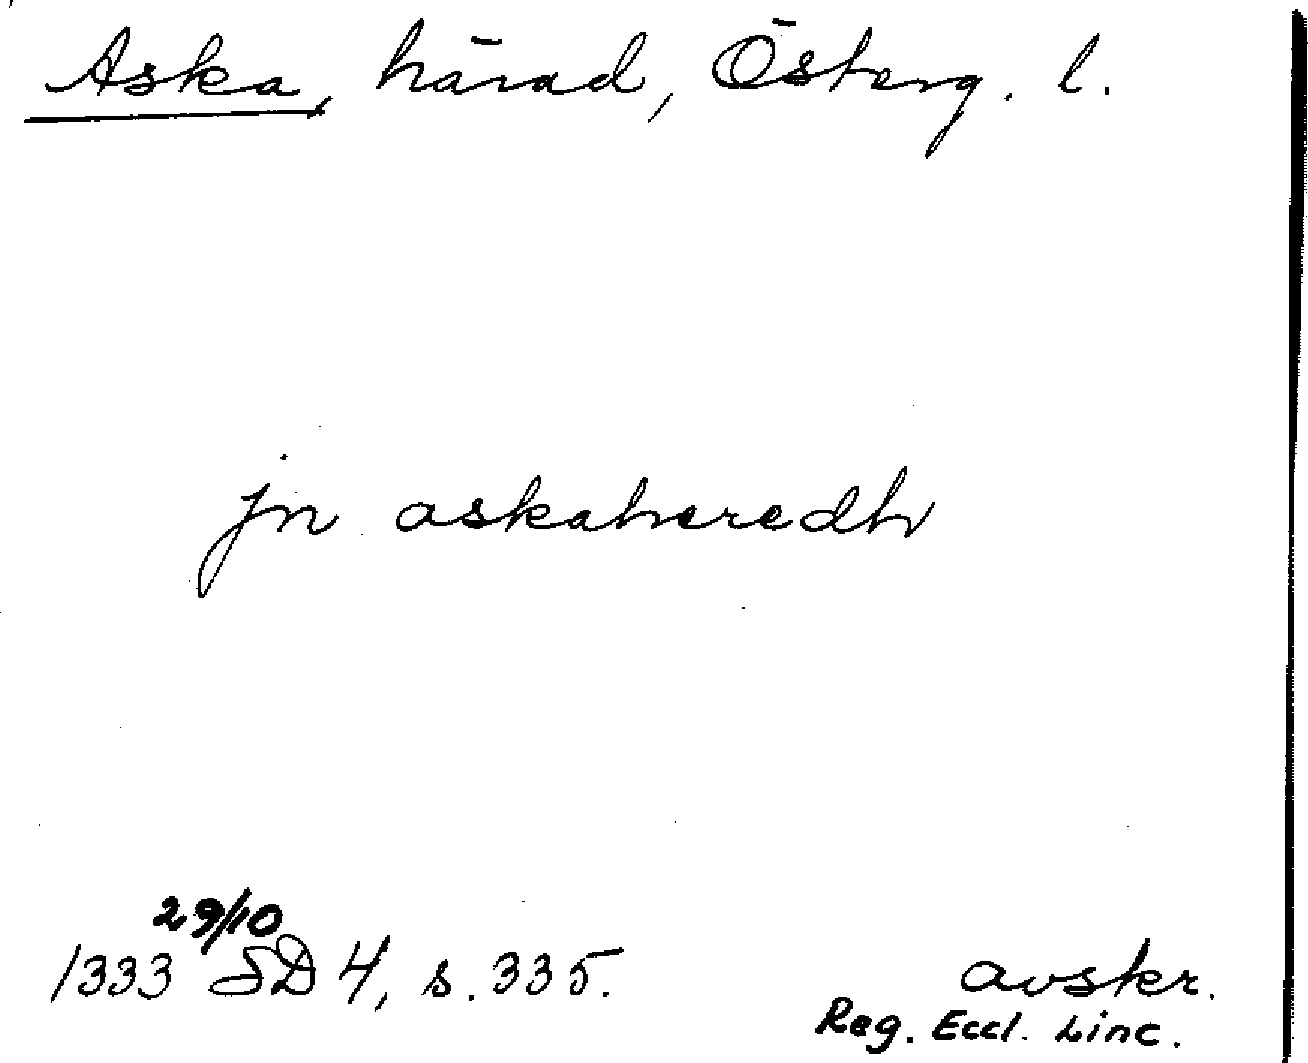 Aska, härad, Österg. l.
jn askaheredh
29/10
1333 SD 4, s. 335.
avskr.
Reg. Eccl. Linc.